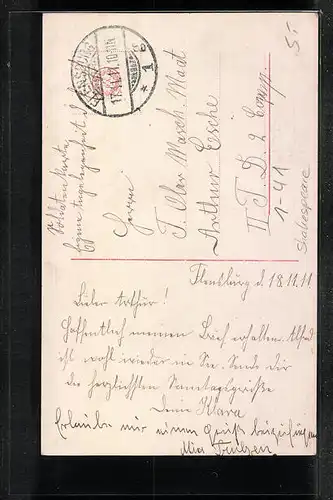 FLENSBURG
17.11.11.10-11N
* 1 b
Soldatenkarte
Eigene Angelegenheit d.
Herrn
T. Ober Masch. Maat
Arthur Esche
II T. D. 2 Comp.
1-41
5.-
Flensburg d. 18.11.11
Lieber Arthur!
Hoffentlich meinen Brief erhalten. Alfred
ist wohl wieder in See. Sende dir
die herzlichsten Sonntagsgrüße
Deine Klara
Erlaube mir einen Gruß beizufügen
Mia